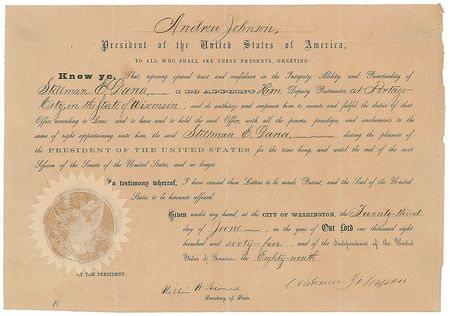 Andrew Johnson,
President of the United States of America,
TO ALL WHO SHALL SEE THESE PRESENTS, GREETING:
Know ye, That, reposing special trust and confidence in the Integrity, Ability, and Punctuality of
Stillman E. Dana, I DO APPOINT Him Deputy Postmaster, at Portage
City, in the State of Wisconsin; and do authorize and empower him to execute and fulfil the duties of that
Office according to Law; and to have and to hold the said Office, with all the powers, privileges, and emoluments to the
same of right appertaining unto him, the said Stillman E. Dana, during the pleasure of
the PRESIDENT OF THE UNITED STATES for the time being, and until the end of the next
Session of the Senate of the United States, and no longer.
In testimony whereof, I have caused these Letters to be made Patent, and the Seal of the United
States to be hereunto affixed.
Given under my hand, at the CITY OF WASHINGTON, the Twenty-third
day of June, in the year of Our Lord one thousand eight
hundred and sixty-five, and of the Independence of the United
States of America, the Eighty-ninth.
BY THE PRESIDENT:
Andrew Johnson
William H. Seward
Secretary of State.